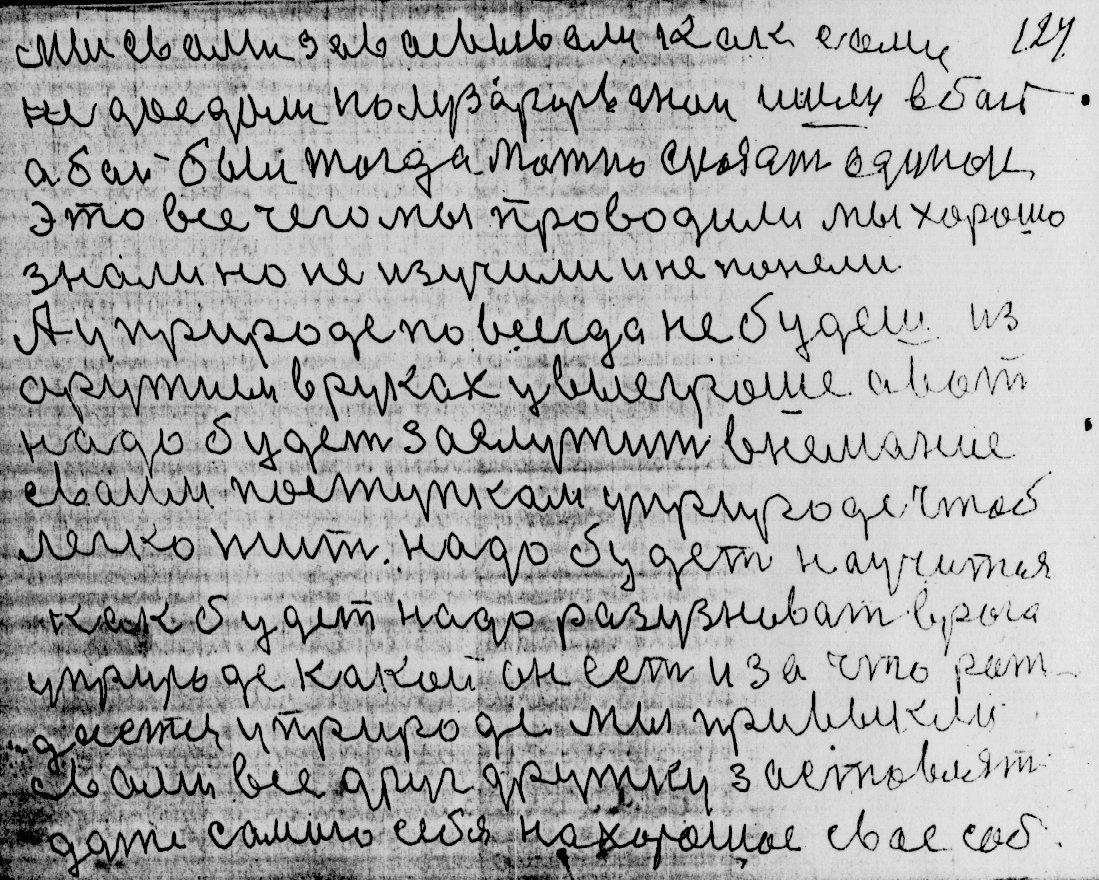 мы свами заваевывали как сами 127
не доедали полуразарваном шли в бой
а бой был тогда можно сказат один
Это все чего мы проводили мы хорошо
знали но не изучили и не поняли
А у природе по всегда не будеш из
оружием в руках у выегроше а вот
надо будет заслужит внемание
сваим поступкам у природе чтоб
легко жит. надо будет научится
как будет надо разузноват врага
у природе какой он ест и за что рож-
дается у природе. мы привыкли
свами все друг дружку застовлят
даже самого себя на хорошое свае соб.